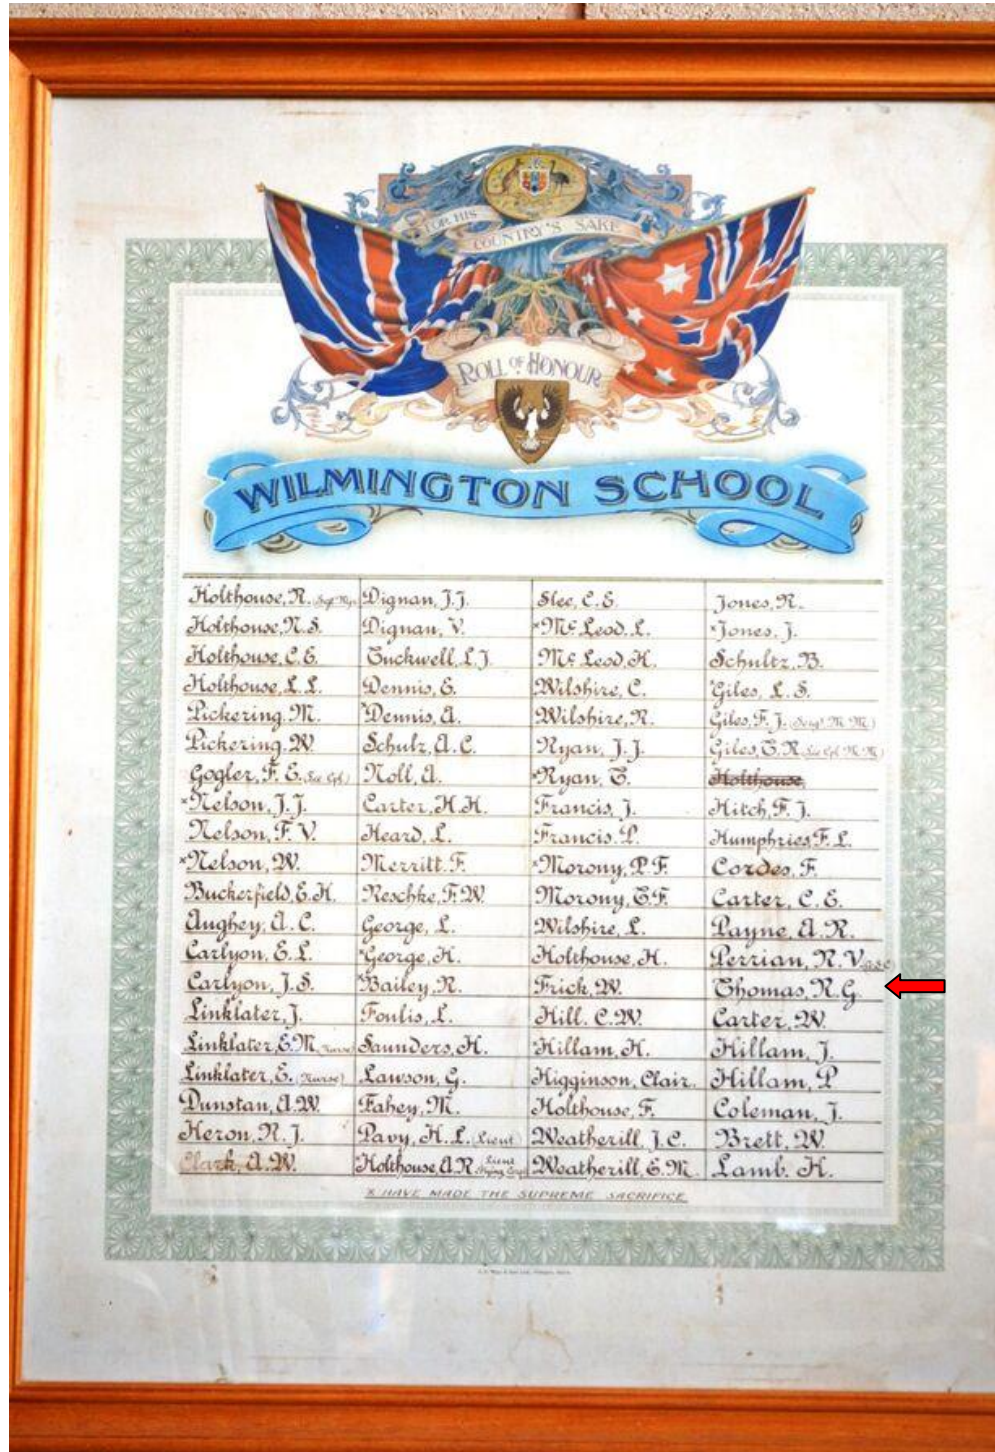 FOR HIS
COUNTRY'S SAKE
ROLL OF HONOUR
WILMINGTON SCHOOL
Holthouse, R. Dignan, J.J. Slee, C.E. Jones, R.
Holthouse, N.S. Dignan, V. ×McLeod, L. ×Jones, J.
Holthouse, C.E. Tuckwell, L.J. McLeod, H. Schultz, B.
Holthouse, L.L. Dennis, E. Wilshire, C. ×Giles, L.S.
Pickering, M. ×Dennis, A. Wilshire, R. Giles, F.J. (Sergt M.M.)
Pickering, W. Schulz, A.C. Ryan, J.J. Giles, T.R. (Lce Cpl M.M.)
Gogler, F.E. (Lce Cpl) Noll, A. ×Ryan, T. Holthouse,
×Nelson, J.J. Carter, H.H. Francis, J. Hitch, F.J.
Nelson, F.V. Heard, L. Francis, P. Humphries, F.L.
×Nelson, W. Merritt, F. ×Morony, P.F. Cordes, F.
Buckerfield, E.H. Reschke, F.W. Morony, T.F. Carter, C.E.
Aughey, A.C. George, L. Wilshire, L. Payne, A.R.
Carlyon, E.L. ×George, H. Holthouse, H. Perrian, R.V.
Carlyon, J.S. ×Bailey, R. Frick, W. Thomas, R.G.
Linklater, J. Foulis, L. Hill, C.W. Carter, W.
Linklater, E.M. (Nurse) Saunders, H. ×Hillam, H. Hillam, J.
Linklater, E. (Nurse) Lawson, G. Higginson, Clair. Hillam, P
Dunstan, A.W. Fahey, M. Holthouse, F. Coleman, J.
Heron, R.J. Pavy, H.L. (Lieut) Weatherill, J.C. Brett, W.
Clark, A.W. ×Holthouse, A.R. Lieut Flying Corps Weatherill, E.M. Lamb, H.
X HAVE MADE THE SUPREME SACRIFICE